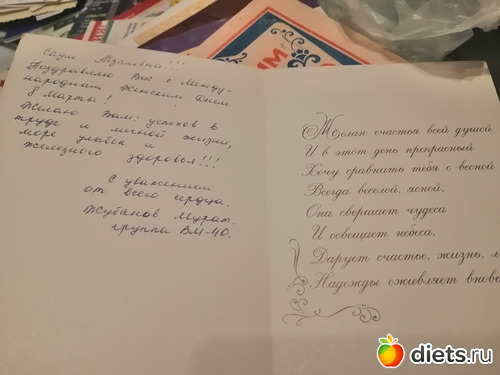 Сауле Мдалевна!!!
Поздравляю Вас с Между-
народным Женским Днём
8 Марта!
Желаю Вам: успехов в
труде и личной жизни,
море улыбок и
железного здоровья!!!
С уважением
от всего сердца.
Жубанов Мурат.
группа ВМ-40.
Желаю счастья всей душой
И в этот день прекрасный
Хочу сравнить тебя с весной
Всегда веселой, ясной,
Она свершает чудеса
И освещает небеса,
Дарует счастье, жизнь,
Надежды оживляет вновь
diets.ru